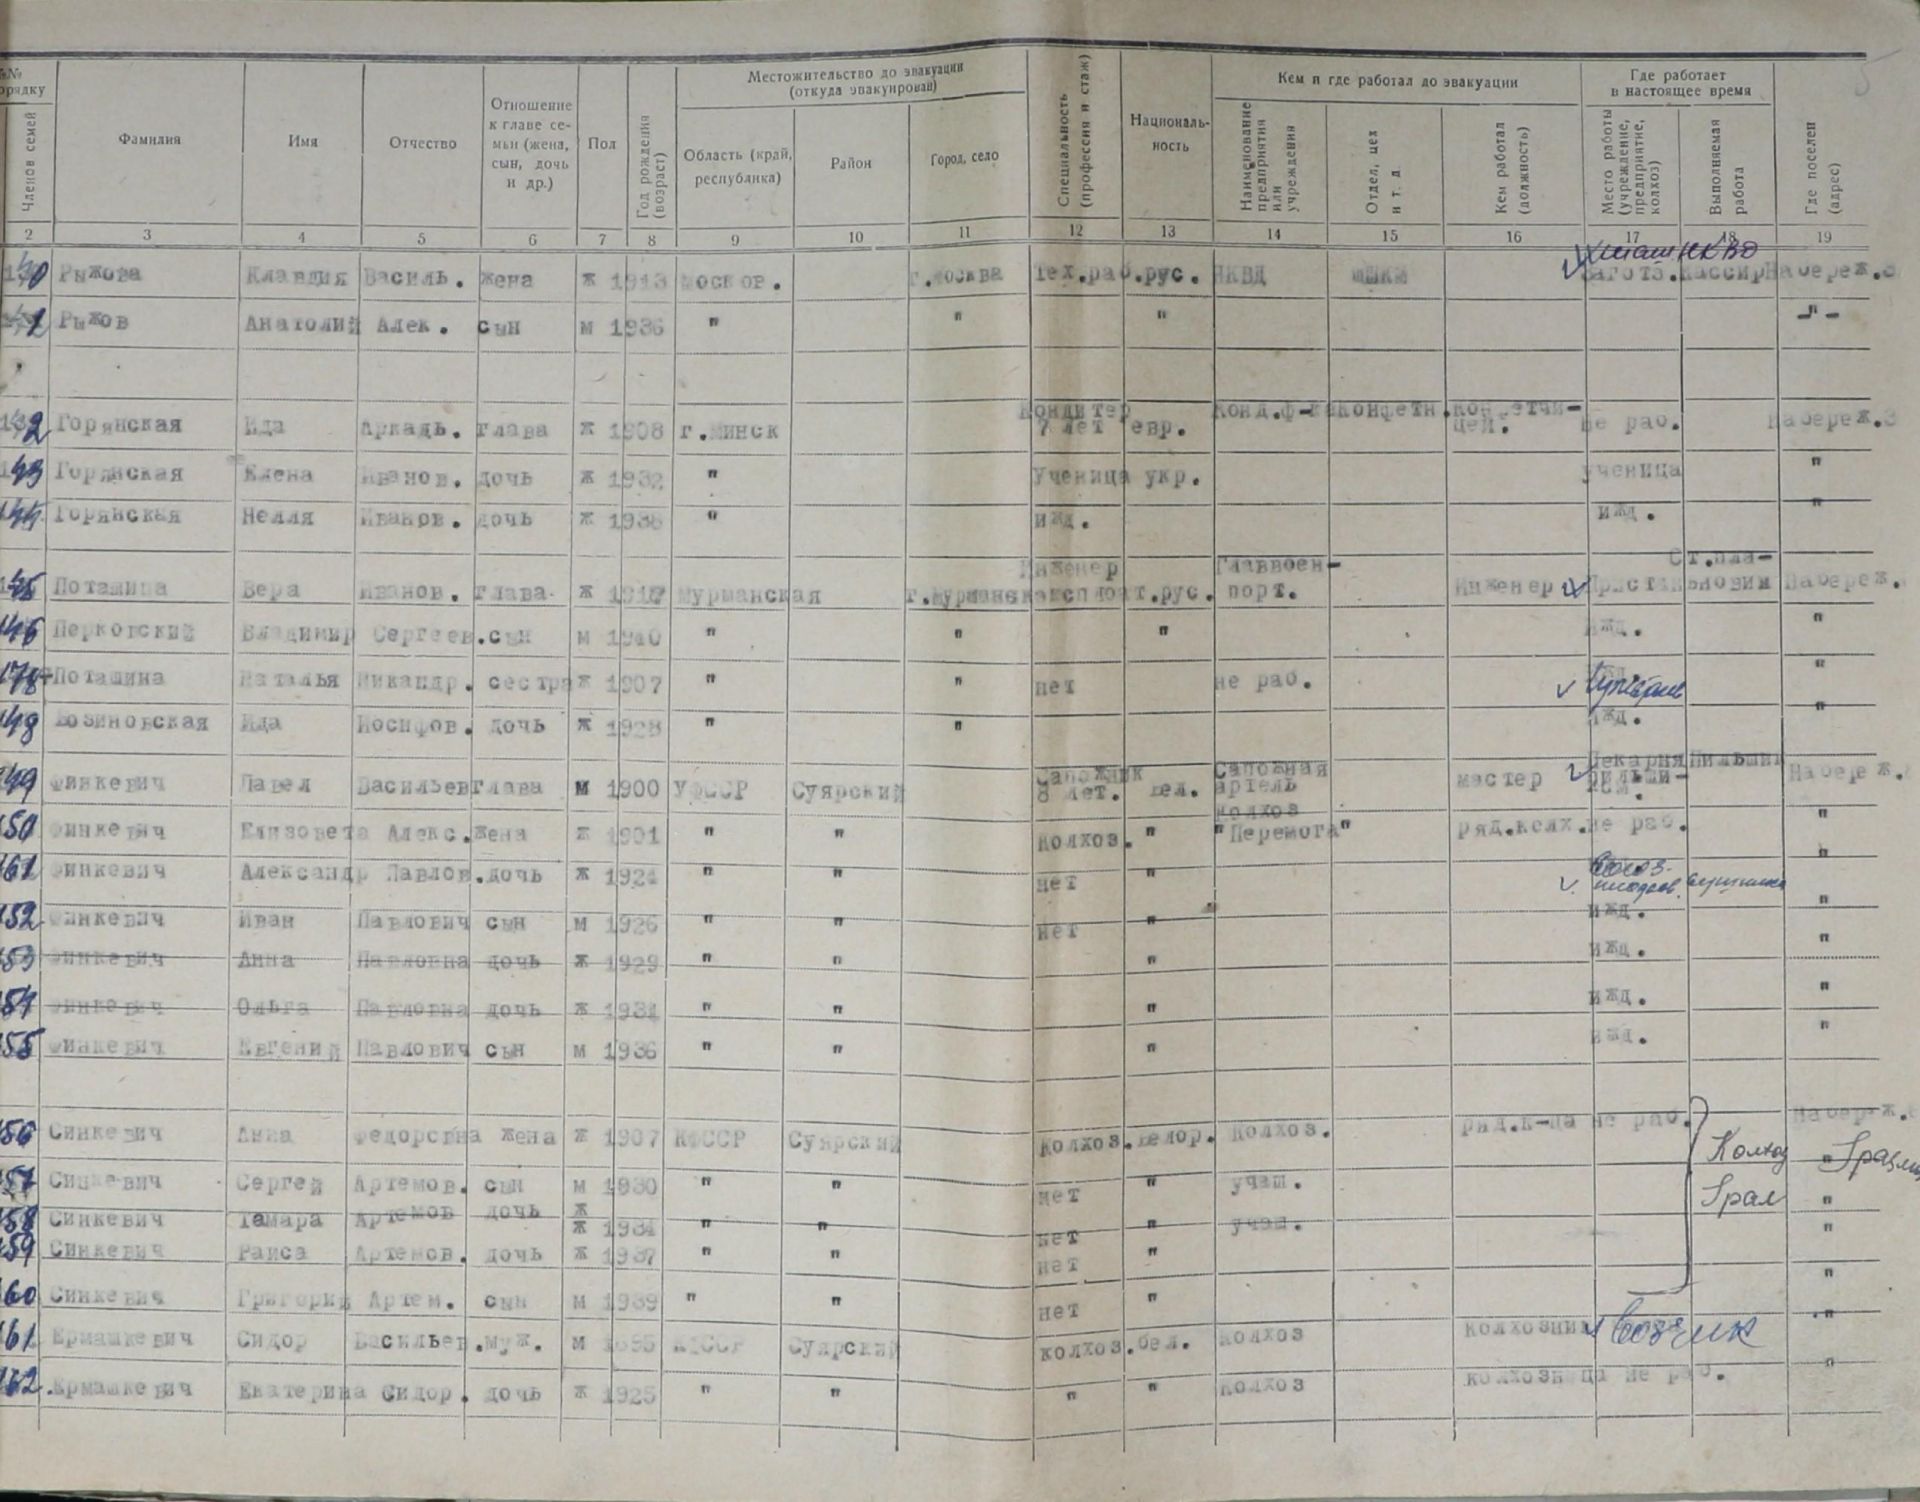 №№ порядку
Членов семей
Фамилия
Имя
Отчество
Отношение к главе семьи (жена, сын, дочь и др.)
Пол
Год рождения (возраст)
Местожительство до эвакуации (откуда эвакуирован)
Область (край, республика)
Район
Город, село
Специальность (профессия и стаж)
Националь-ность
Кем и где работал до эвакуации
Наименование предприятия или учреждения
Отдел, цех и т. д.
Кем работал (должность)
Где работает в настоящее время
Место работы (учреждение, предприятие, колхоз)
Выполняемая работа
Где поселен (адрес)
2 3 4 5 6 7 8 9 10 11 12 13 14 15 16 17 18 19
Рыжова Клавдия Василь. жена ж 1913 Москов. г.Москва Тех.раб. рус. НКВД Заготз. кассир Набереж.3
Рыжов Анатолий Алек. сын м 1936 " " " -"-
Горянская Ида Аркадь. глава ж 1908 г.Минск Кондитер 7 лет евр. Конд.ф-ка Конфетн. не раб. Набереж.3
143 Горянская Елена Иванов. дочь ж 1932 " Ученица укр. ученица "
144 Горянская Нелля Иванов. дочь ж 1938 " ижд. ижд. "
145 Поташина Вера Иванов. глава ж Мурманская г.Мурманск Инженер эксплоат. рус. Главвоен-порт. Инженер Набереж.
146 Перковский Владимир Сергеев. сын м 1940 " " " ижд. "
Поташина Наталья Никандр. сестра ж 1907 " " нет не раб. "
148 Возиновская Ида Иосифов. дочь ж 1928 " " ижд. "
149 Финкевич Павел Васильев глава м 1900 УФССР Суярский Сапожник 8 лет. бел. Сапожная артель мастер Набереж.
150 Финкевич Елизовета Алекс. жена ж 1901 " " колхоз. " колхоз "Перемога" ряд.колх. не раб. "
Финкевич Александр Павлов. дочь ж 1924 " " нет "
152 Финкевич Иван Павлович сын м 1926 " " нет " ижд. "
153 Финкевич Анна Павловна дочь ж 1929 " " " ижд. "
154 Финкевич Ольга Павловна дочь ж 1931 " " " ижд. "
155 Финкевич Евгений Павлович сын м 1936 " " " ижд. "
156 Синкевич Анна Федоровна жена ж 1907 КФССР Суярский колхоз. белор. колхоз. ряд.к-ца не раб. Колхоз Набереж.
157 Синкевич Сергей Артемов. сын м 1930 " " нет " учащ. "
158 Синкевич Тамара Артемов дочь ж 1934 " " нет " учащ. "
159 Синкевич Раиса Артемов. дочь ж 1937 " " нет " "
160 Синкевич Григорий Артем. сын м 1939 " " нет " "
161 Ермашкевич Сидор Васильев. муж. м КФССР Суярский колхоз. бел. колхоз колхозник возчик "
162. Ермашкевич Екатерина Сидор. дочь ж 1925 " " " " колхоз колхозница не раб. "